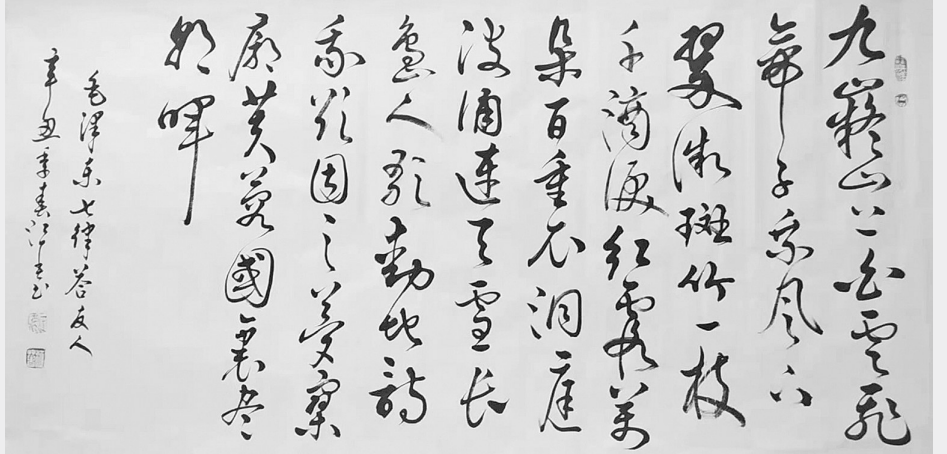 九嶷山上白雲飛
帝子乘風下
翠微斑竹一枝
千滴淚紅霞萬
朵百重衣洞庭
波涌連天雪長
島人歌動地詩
我欲因之夢寥
廓芙蓉國裏尽
朝暉
毛澤東七律答友人
辛丑年春